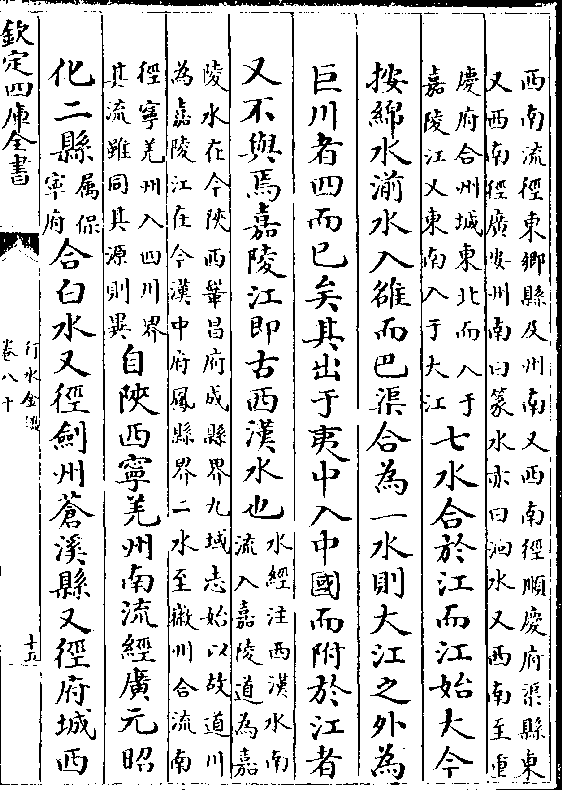 西南流徑東鄉縣及州南又西南徑順慶府渠縣東
又西南徑廣安州南曰篆水亦曰洄水又西南至重
慶府合州城東北而入于
嘉陵江又東南入于大江
七水合於江而江始大今
按綿水湔水入雒而巴渠合為一水則大江之外為
巨川者四而已矣其出于夷中入中國而附於江者
又不與焉嘉陵江即古西漢水也
水經注西漢水南
流入嘉陵道為嘉
陵水在今陜西鞏昌府成縣界九域志始以故道川
為嘉陵江在今漢中府鳳縣界二水至徽州合流南
徑寧羌州入四川界
其流雖同其源則異
自陜西寧羌州南流經廣元昭
化二縣
属保
寧府
合白水又徑劍州蒼溪縣又徑府城西
欽定四庫全書
行水金鑑
卷八十
十五